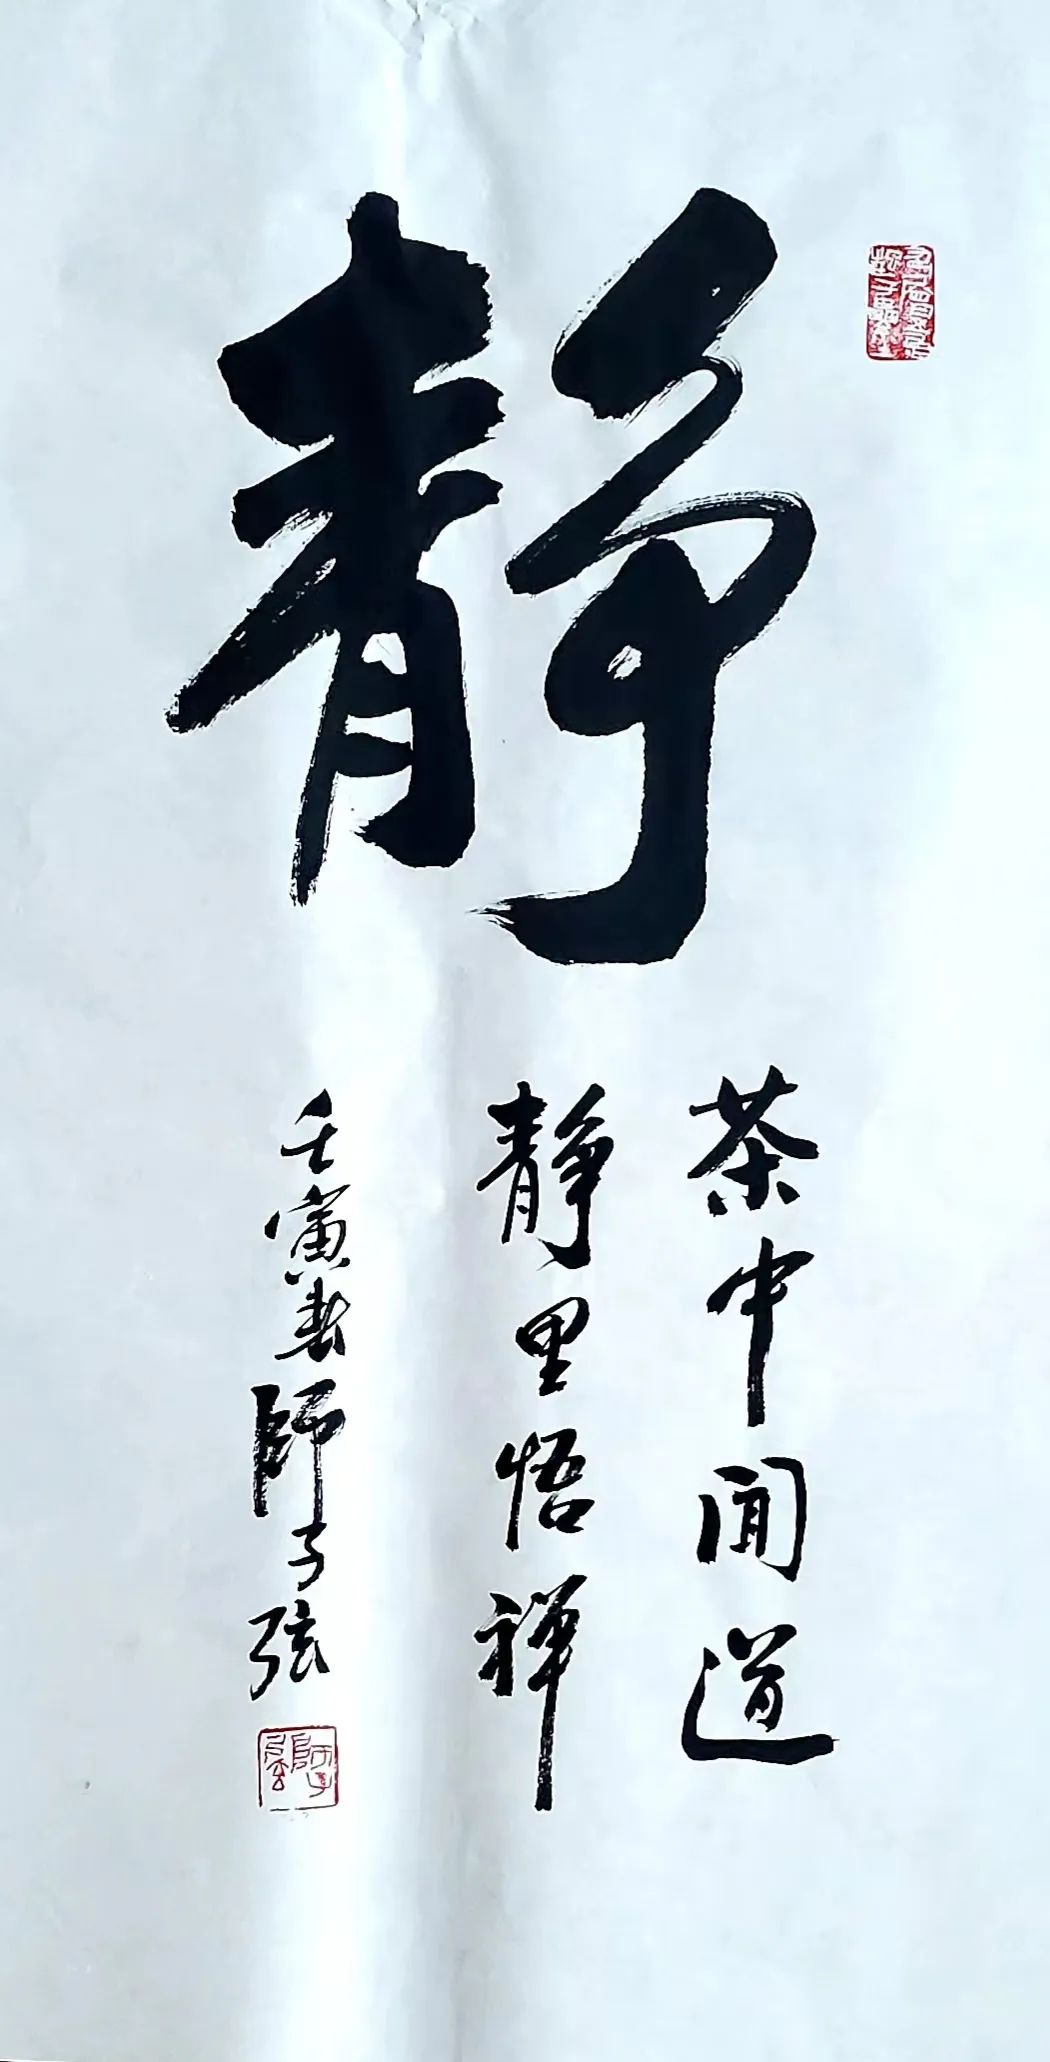 静
茶中闻道
静里悟禅
壬寅春師子弦
師子弦